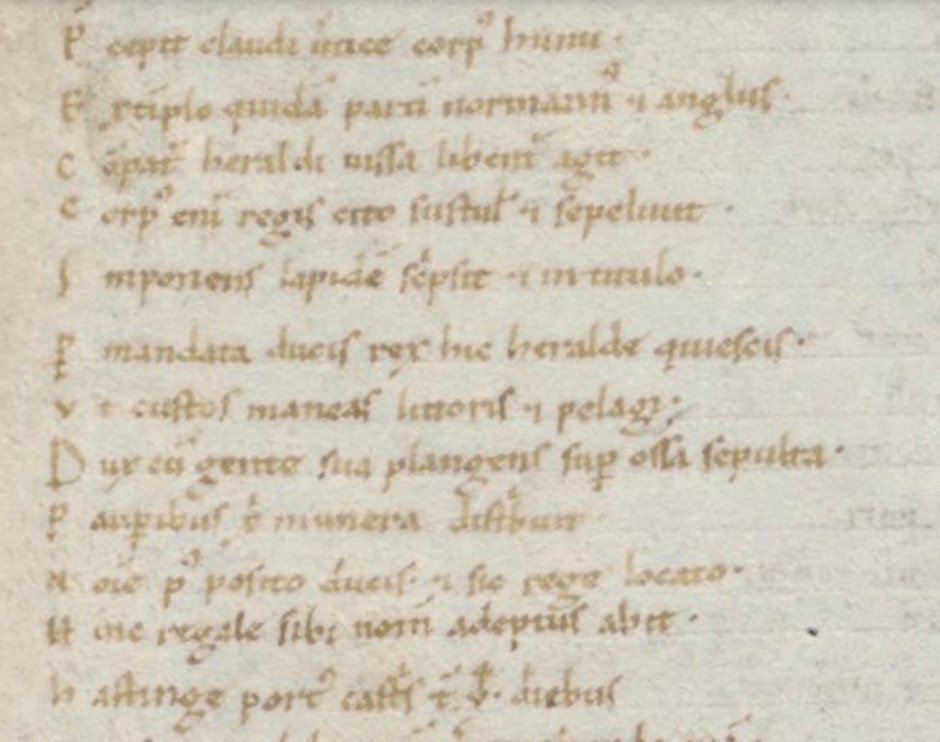 P̄cepit claudi ūtice corp᾽ humi ·
Extiplo quidā parti᷑ normann᾽ ⁊ anglus ·
Cōpat᷑ heraldi iussa libent᷑ agit ·
Corp᾽ eni᷑ regis cito sustul᷑ ⁊ sepeliuit ·
Imponens lapidē sc᷑psit ⁊ in titulo ·
Ꝑ mandata ducis rex hic heralde quiescis ·
Vt custos maneas littoris ⁊ pelagi ;
Dux cū gente sua plangens suꝑ ossa sepulta ·
Pauꝑibus x᷑ munera dist᷑buit
Noiē p᾽posito ducis · ⁊ sic rege locato ·
Hinc regale sibi nom̄ adeptus abit ·
hastinge port᾽ cast᷑s t᷑ v̄ · diebus